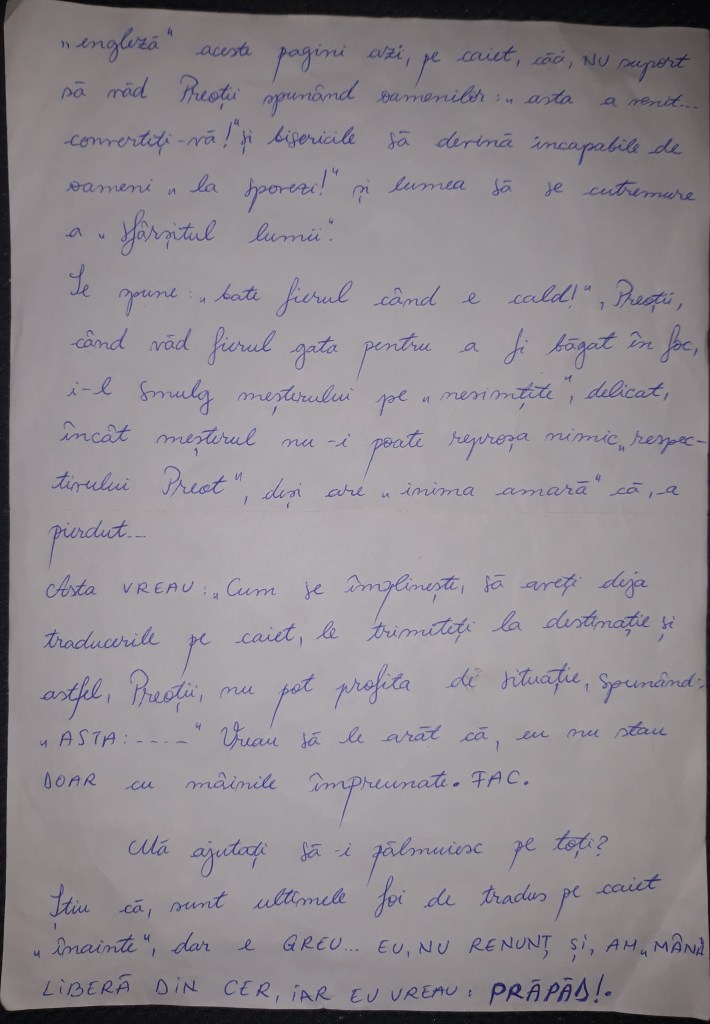 „engleză" aceste pagini azi, pe caiet, căă, NU suport
să văd Preoții spunând oamenilor: „asta a venit...
convertiți-vă!" și bisericile să devină incapabile de
oameni „la spovezi!" și lumea să se cutremure
a „sfârșitul lumii".
Se spune: „bate fierul când e cald!", Preoții,
când văd fierul gata pentru a fi băgat în foc,
i-l smulg meșterului pe „nesimțite", delicat,
încât meșterul nu-i poate reproșa nimic „respec-
tivului Preot", deși are „inima amară" că, -a
pierdut...
Asta VREAU: „Cum se împlinește, să aveți deja
traducerile pe caiet, le trimiteți la destinație și
astfel, Preoții, nu pot profita de situație, spunând:
„ASTA: ----" Vreau să le arăt că, eu nu stau
DOAR cu mâinile împreunate. FAC.
Mă ajutați să-i pălmuiesc pe toți?
Știu că, sunt ultimele foi de tradus pe caiet
„înainte", dar e GREU... EU, NU RENUNȚ ȘI, AM „MÂNĂ
LIBERĂ DIN CER, IAR EU VREAU: PRĂPĂD!.